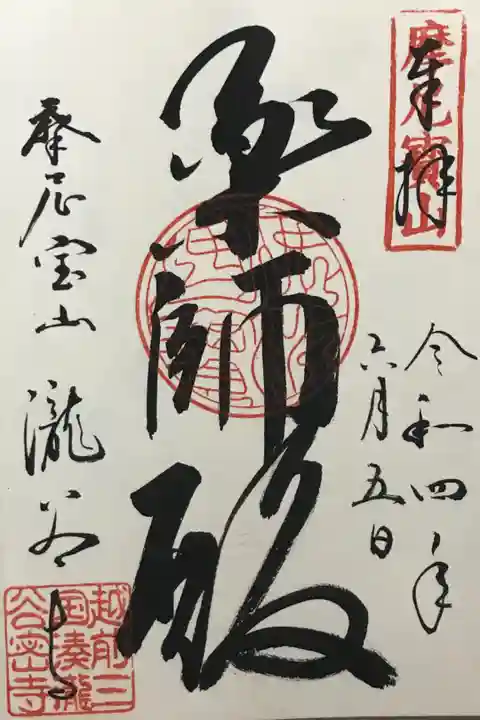 摩尼寳山
奉拝
令和四年
六月五日
薬師殿
摩尼宝山 瀧谷寺
越前三
国湊瀧
谷密寺